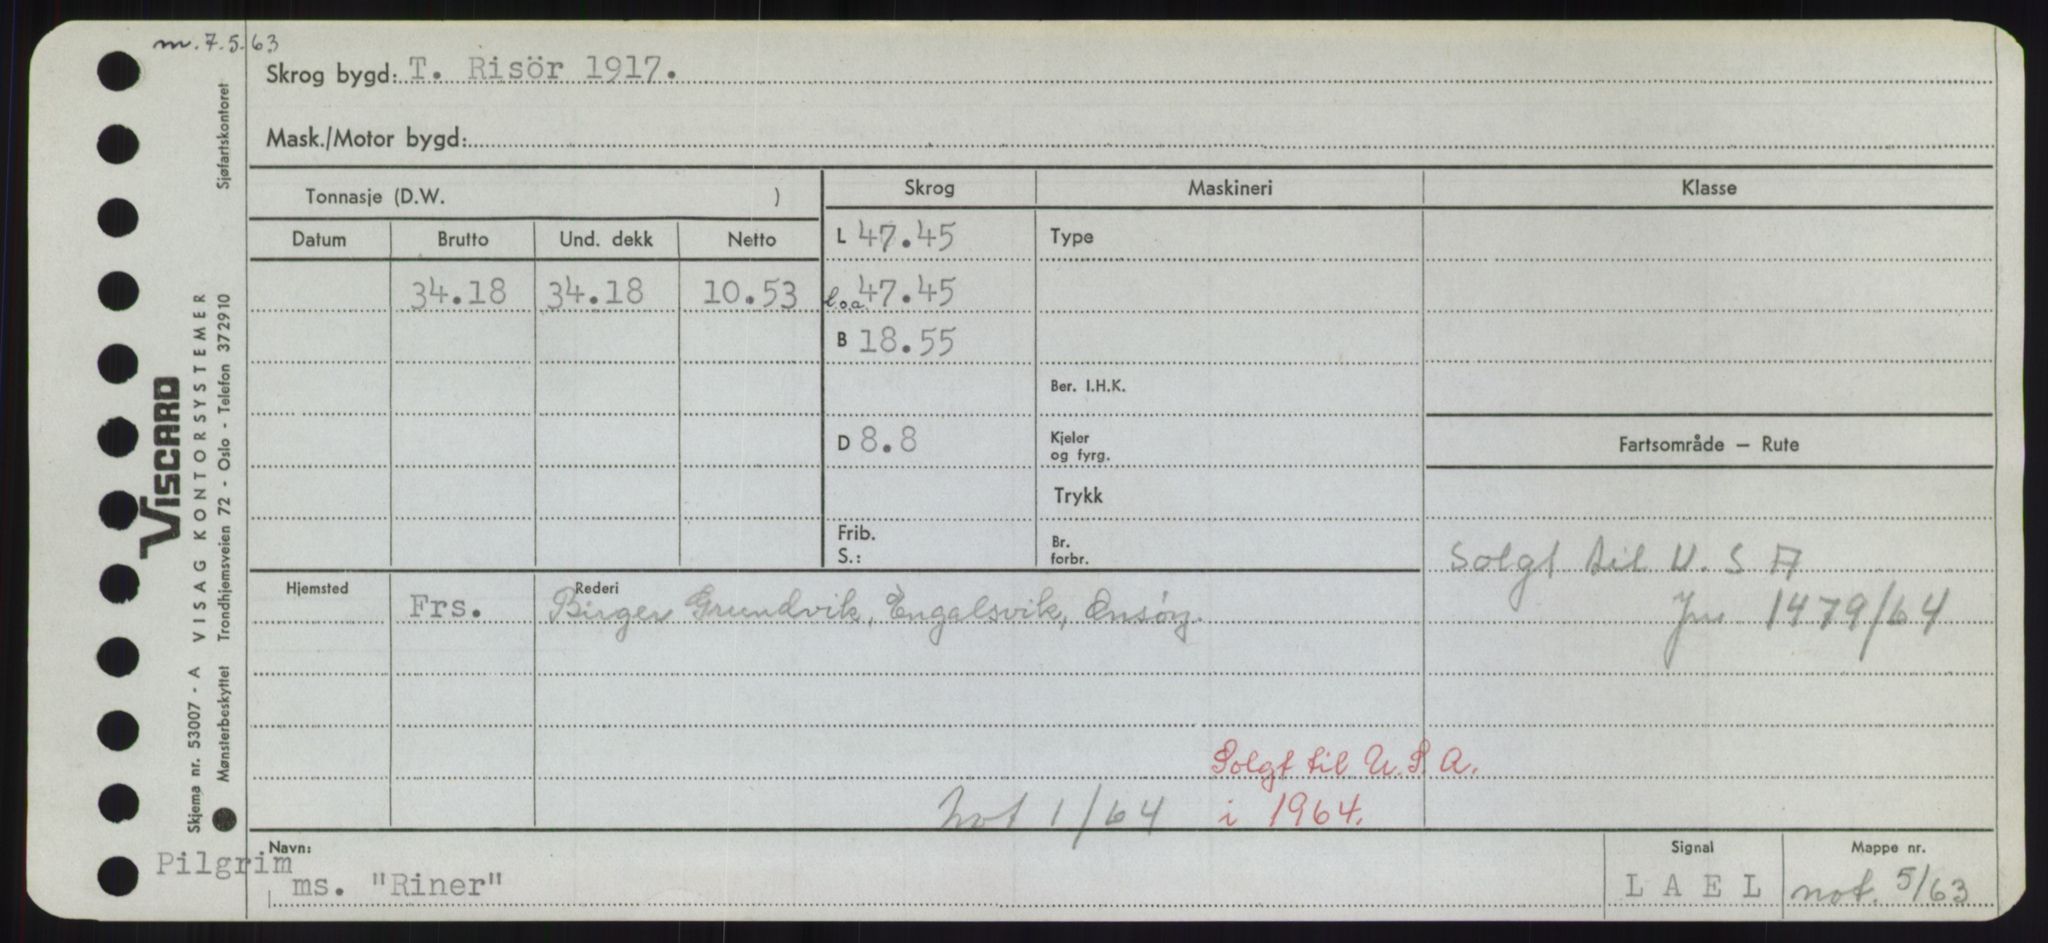 m. 7.5.63
Skrog bygd: T. Risör 1917.
Mask./Motor bygd:
Tonnasje (D.W. )
Skrog
Maskineri
Klasse
Datum
Brutto
Und. dekk
Netto
L 47.45
Type
34.18
34.18
10.53
l.o.a. 47.45
B 18.55
Ber. I.H.K.
D 8.8
Kjeler
og fyrg.
Fartsområde — Rute
Trykk
Frib.
S.:
Br.
forbr.
Solgt til U.S A
Jnr 1479/64
Hjemsted
Rederi
Frs.
Birger Grundvik, Engalsvik, Onsöy.
Solgt til U.S.A.
i 1964.
not 1/64
Navn:
Pilgrim
ms. "Riner"
Signal
L A E L
Mappe nr.
not. 5/63
Sjøfartskontoret
VISCARD
VISAG KONTORSYSTEMER
Trondhjemsveien 72 - Oslo - Telefon 372910
Skjema nr. 53007 - A
Mønsterbeskyttet